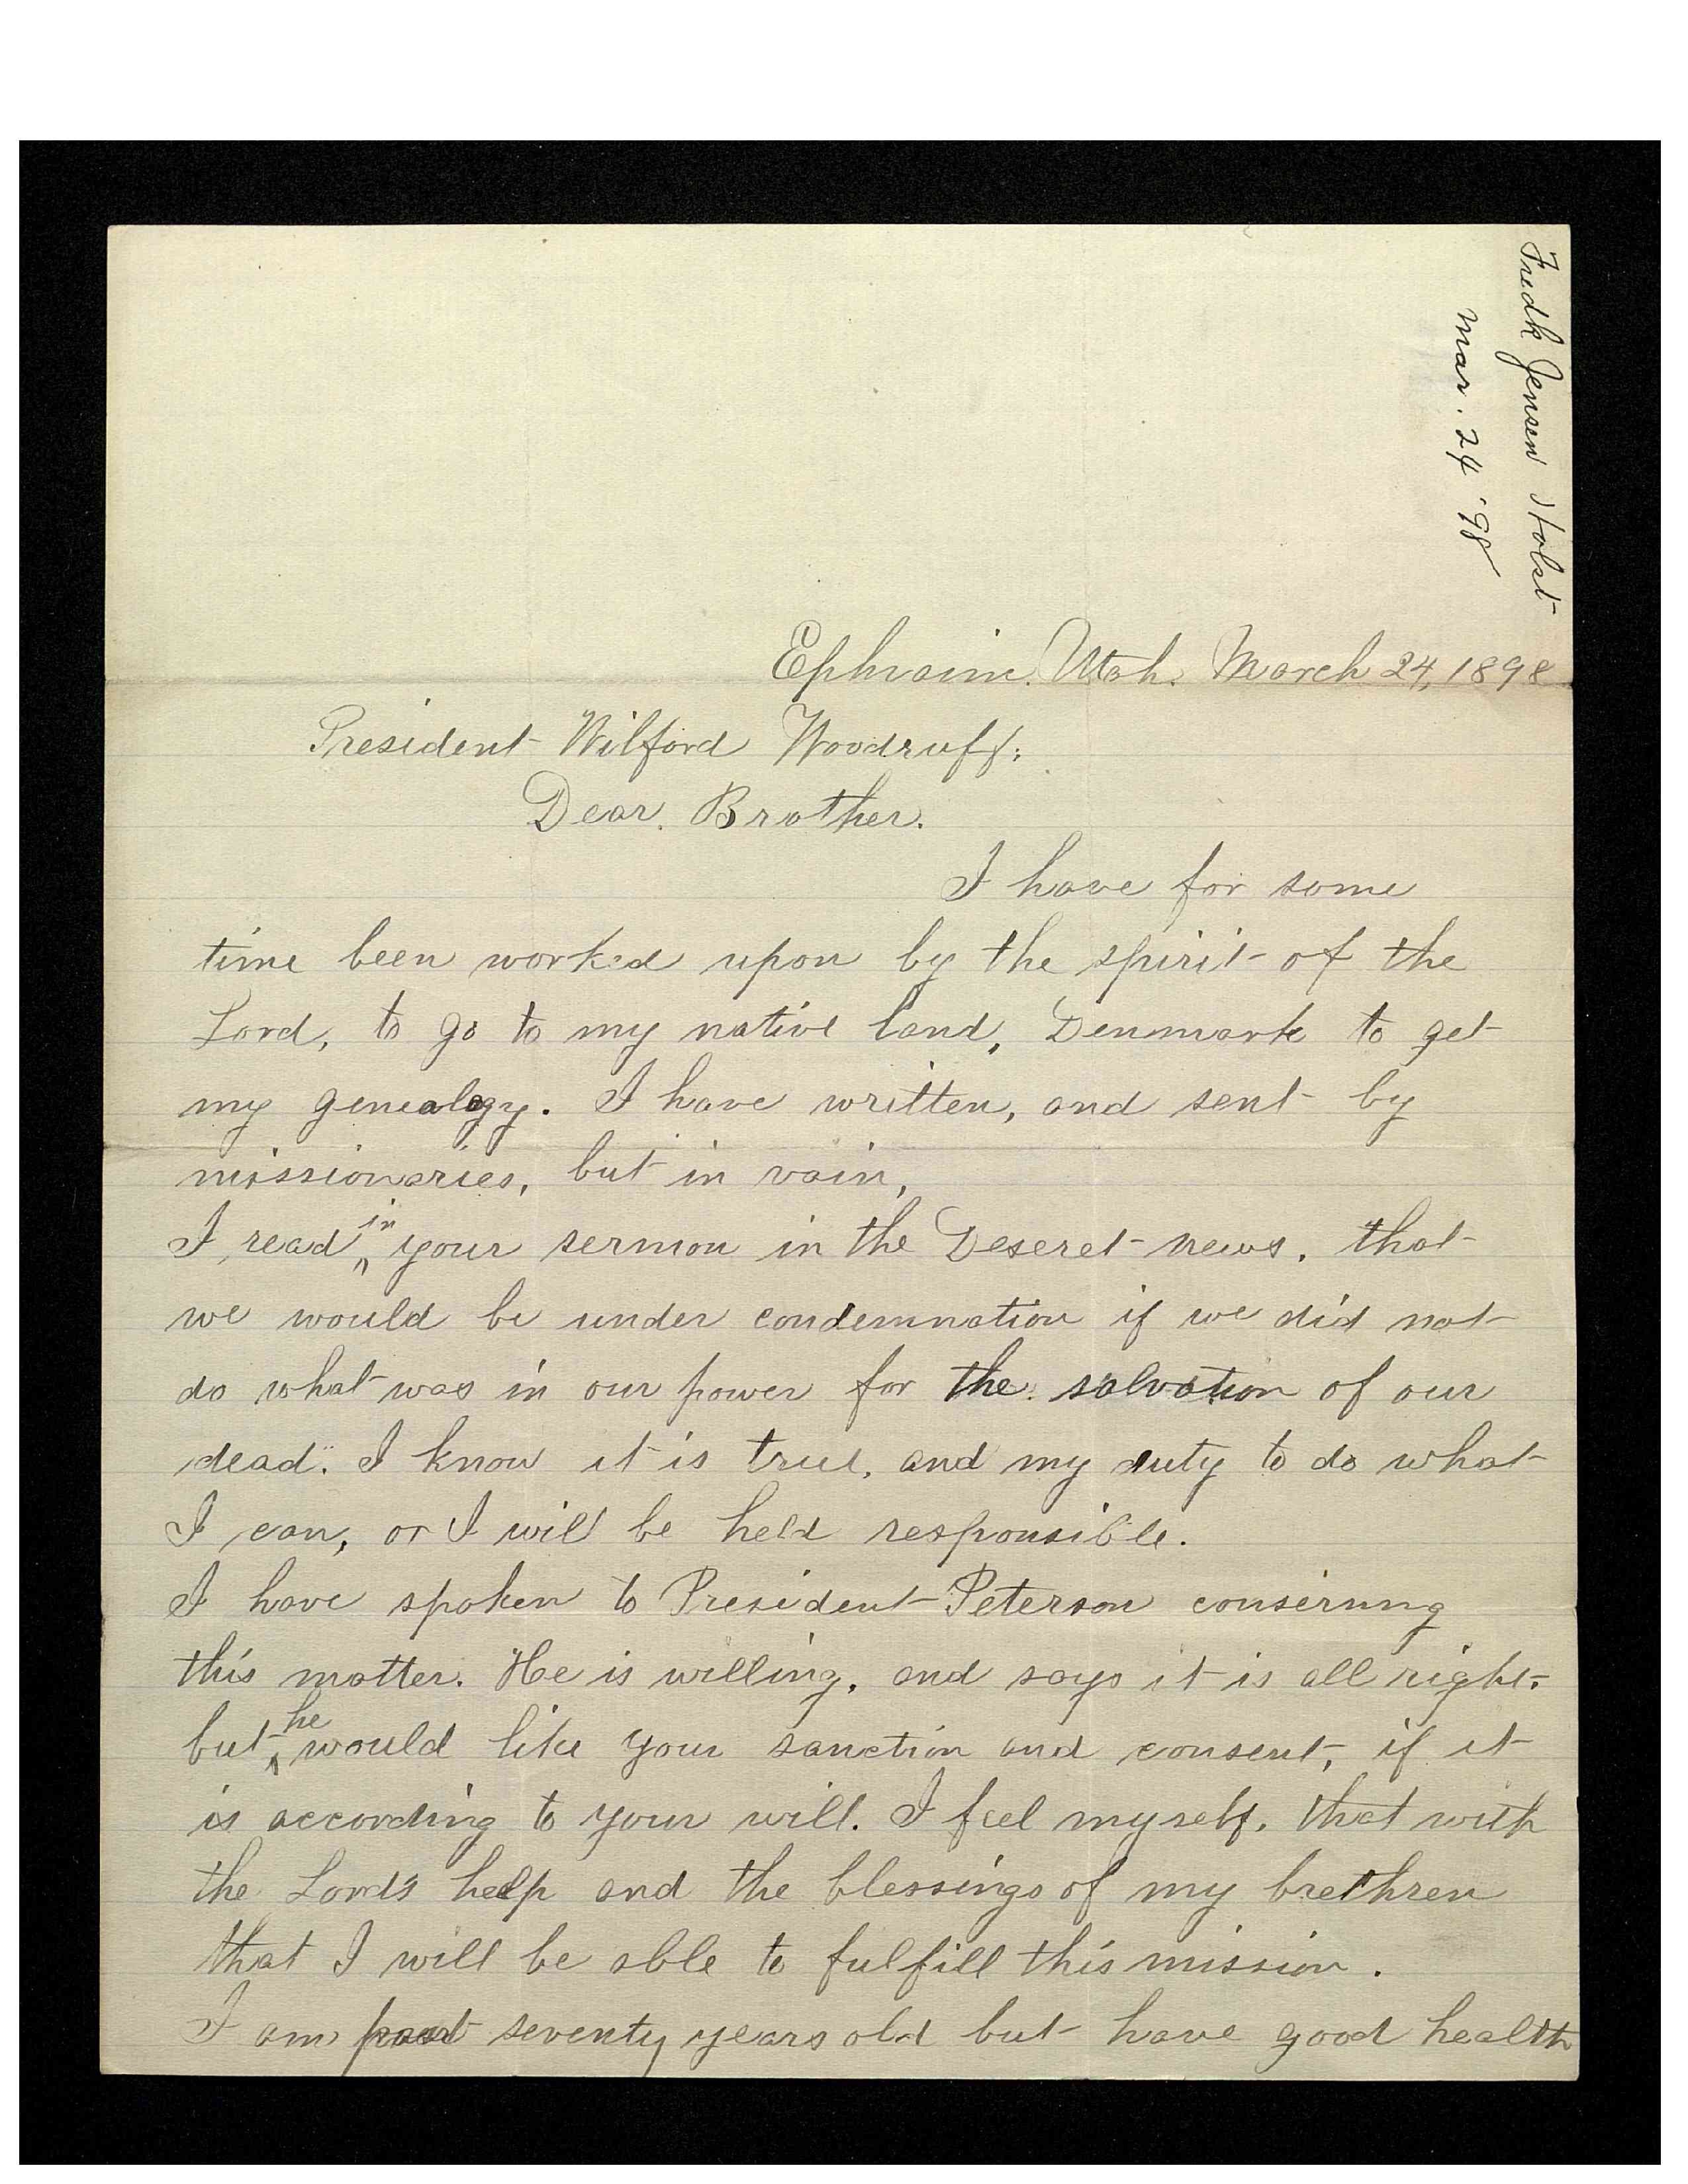 Fredk Jensen Holst
Mar. 24 '98
Ephraim. Utah. March 24, 1898
President Wilford Woodruff:
Dear. Brother.
I have for some
time been worked upon by the spirit of the
Lord, to go to my native land, Denmark to get
my genealogy. I have written, and sent by
missionaries, but in vain,
I read in your sermon in the Deseret news. that
we would be under condemnation if we did not
do what was in our power for the salvation of our
dead". I know it is true, and my duty to do what
I can, or I will be held responsible.
I have spoken to President Peterson conserning
this matter. He is willing, and says it is all right,
but he would like your sanction and consent, if it
is according to your will. I feel myself, that with
the Lord's help and the blessings of my brethren
that I will be able to fulfill this mission.
I am past seventy years old but have good health